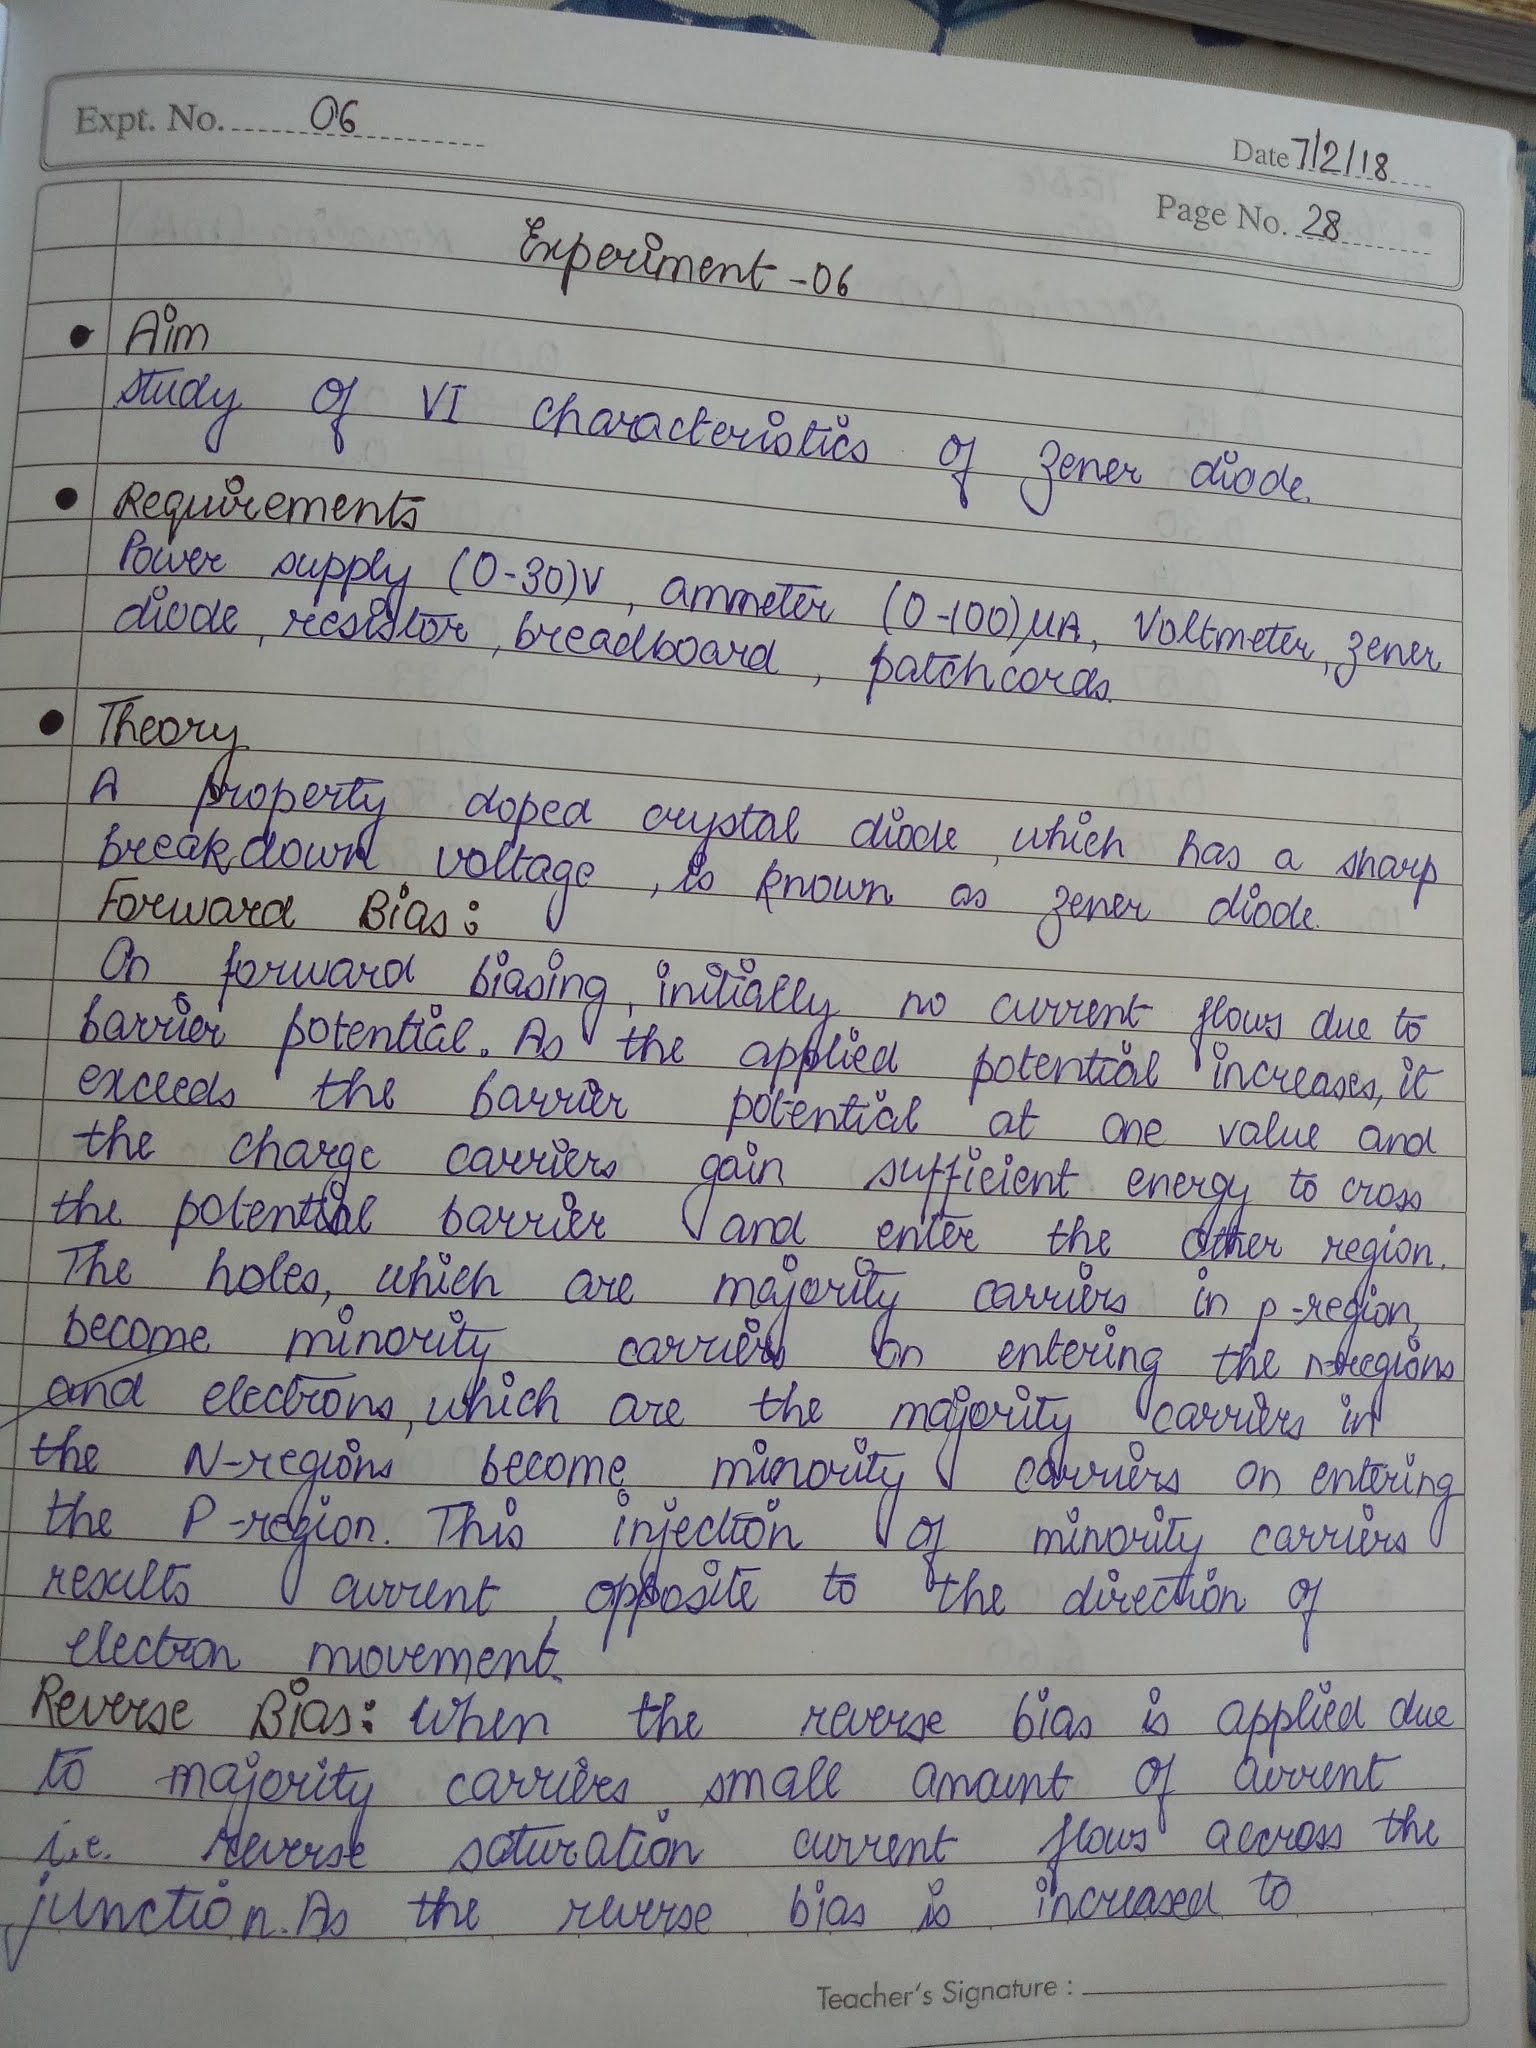 Expt. No. 06
Date 7/2/18
Page No. 28
Experiment - 06
• Aim
study of VI characteristics of zener diode.
• Requirements
Power supply (0-30)V, ammeter (0-100)μA, Voltmeter, zener
diode, resistor, breadboard, patchcords.
• Theory
A property doped crystal diode, which has a sharp
breakdown voltage, is known as zener diode.
Forward Bias:
On forward biasing, initially no current flows due to
barrier potential. As the applied potential increases, it
exceeds the barrier potential at one value and
the charge carriers gain sufficient energy to cross
the potential barrier and enter the other region.
The holes, which are majority carriers in p-region,
become minority carriers on entering the n-regions
and electrons, which are the majority carriers in
the N-regions become minority carriers on entering
the P-region. This injection of minority carriers
results current, opposite to the direction of
electron movement.
Reverse Bias: When the reverse bias is applied due
to majority carriers small amount of current
i.e. reverse saturation current flows accross the
junction. As the reverse bias is increased to
Teacher's Signature :